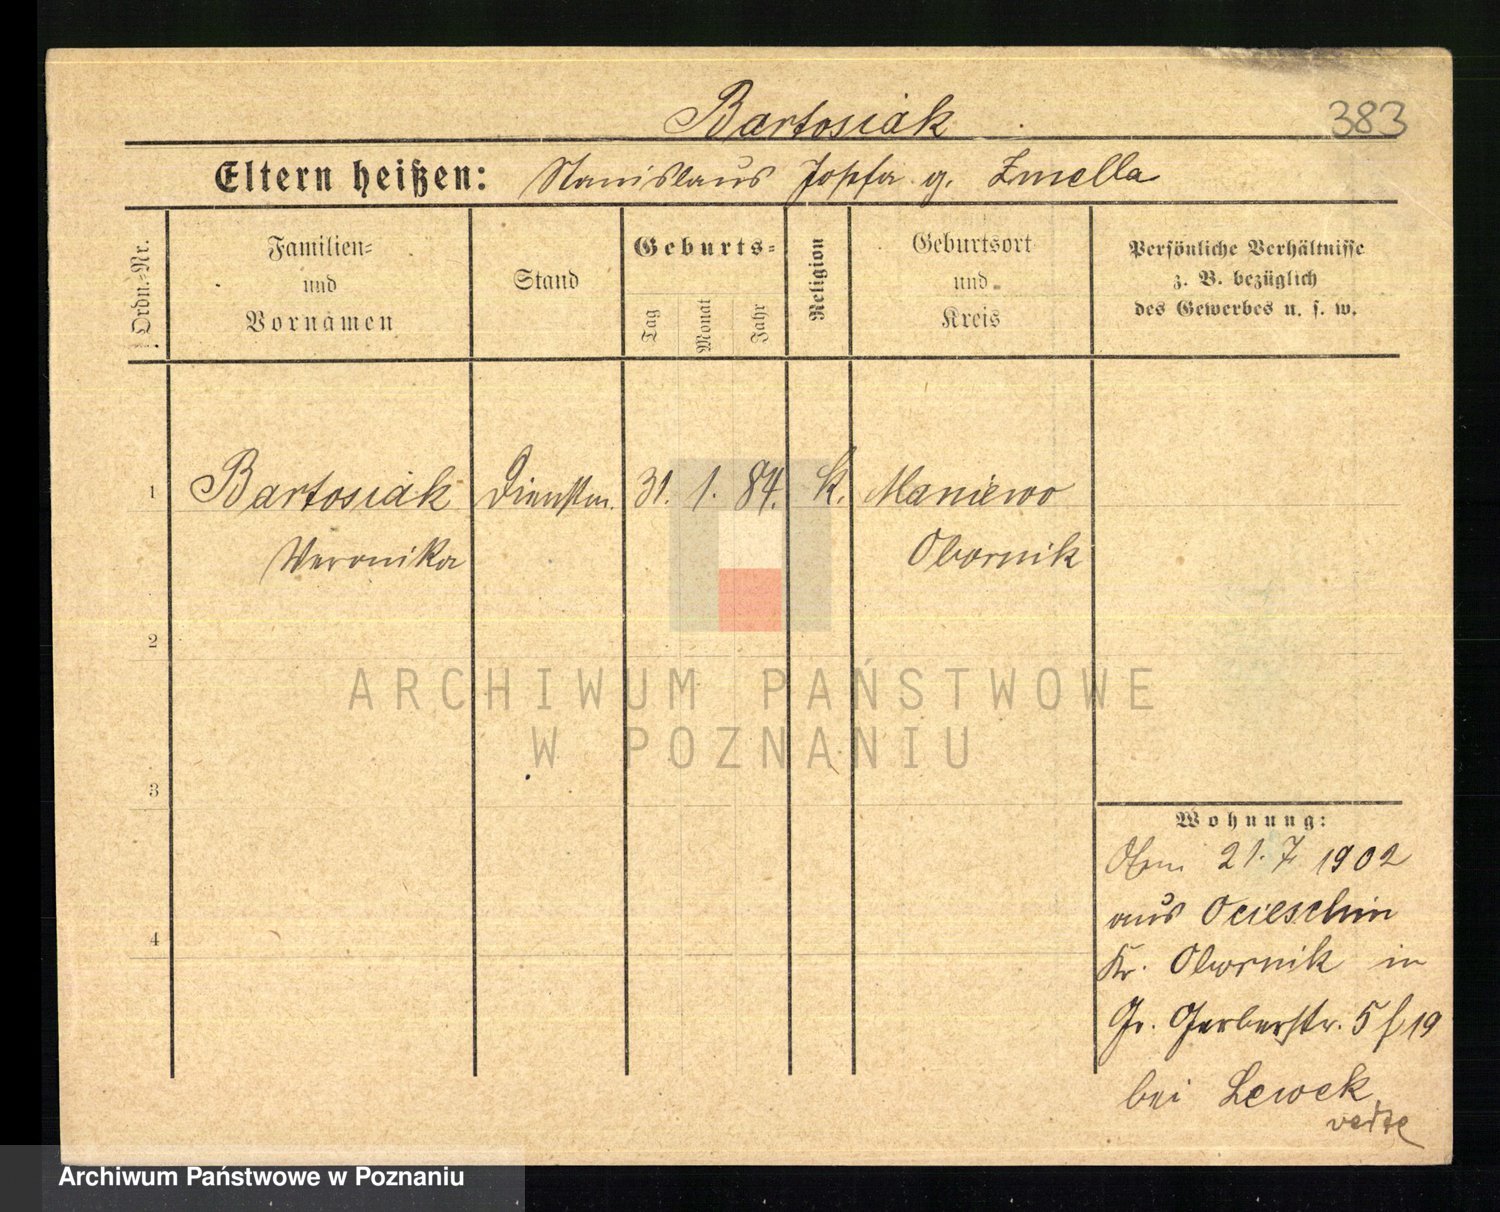 Bartosiak
383
Eltern heißen: Stanislaus Josefa g. Zmella
Ordn.-Nr.
Familien-
und
Vornamen
Stand
Geburts-
Tag
Monat
Jahr
Religion
Geburtsort
und
Kreis
Persönliche Verhältnisse
z. B. bezüglich
des Gewerbes u. s. w.
1 Bartosiak Dienstm. 31. 1. 84. K. Maniewo
Veronika Obornik
2
3
4
Wohnung:
21. 7. 1902
aus Ocieschin
Kr. Obornik in
Gr. Gerberstr. 5 / 19
bei Lewek
verte
ARCHIWUM PAŃSTWOWE
W POZNANIU
Archiwum Państwowe w Poznaniu